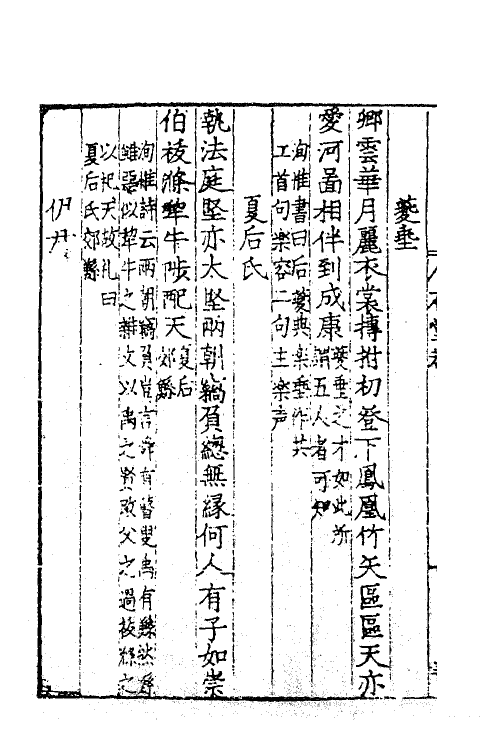 夔垂
卿雲華月麗衣裳搏拊初登下鳳凰竹矢區區天亦
愛河啚相伴到成康夔垂之才如此所謂五人者可知
洵惟書曰后夔典樂垂作共
工首句樂容二句主樂声
夏后氏
執法庭堅亦大堅兩朝縞負總無緣何人有子如崇
伯被滌犂牛陟配天夏后郊鯀
洵惟詩云兩朝縞負豈言舜有瞽叟禹有鯀然
雖惡似犂牛之雜文以禹之賢改父之過
以祀天故礼曰
夏后氏郊鯀
伊尹